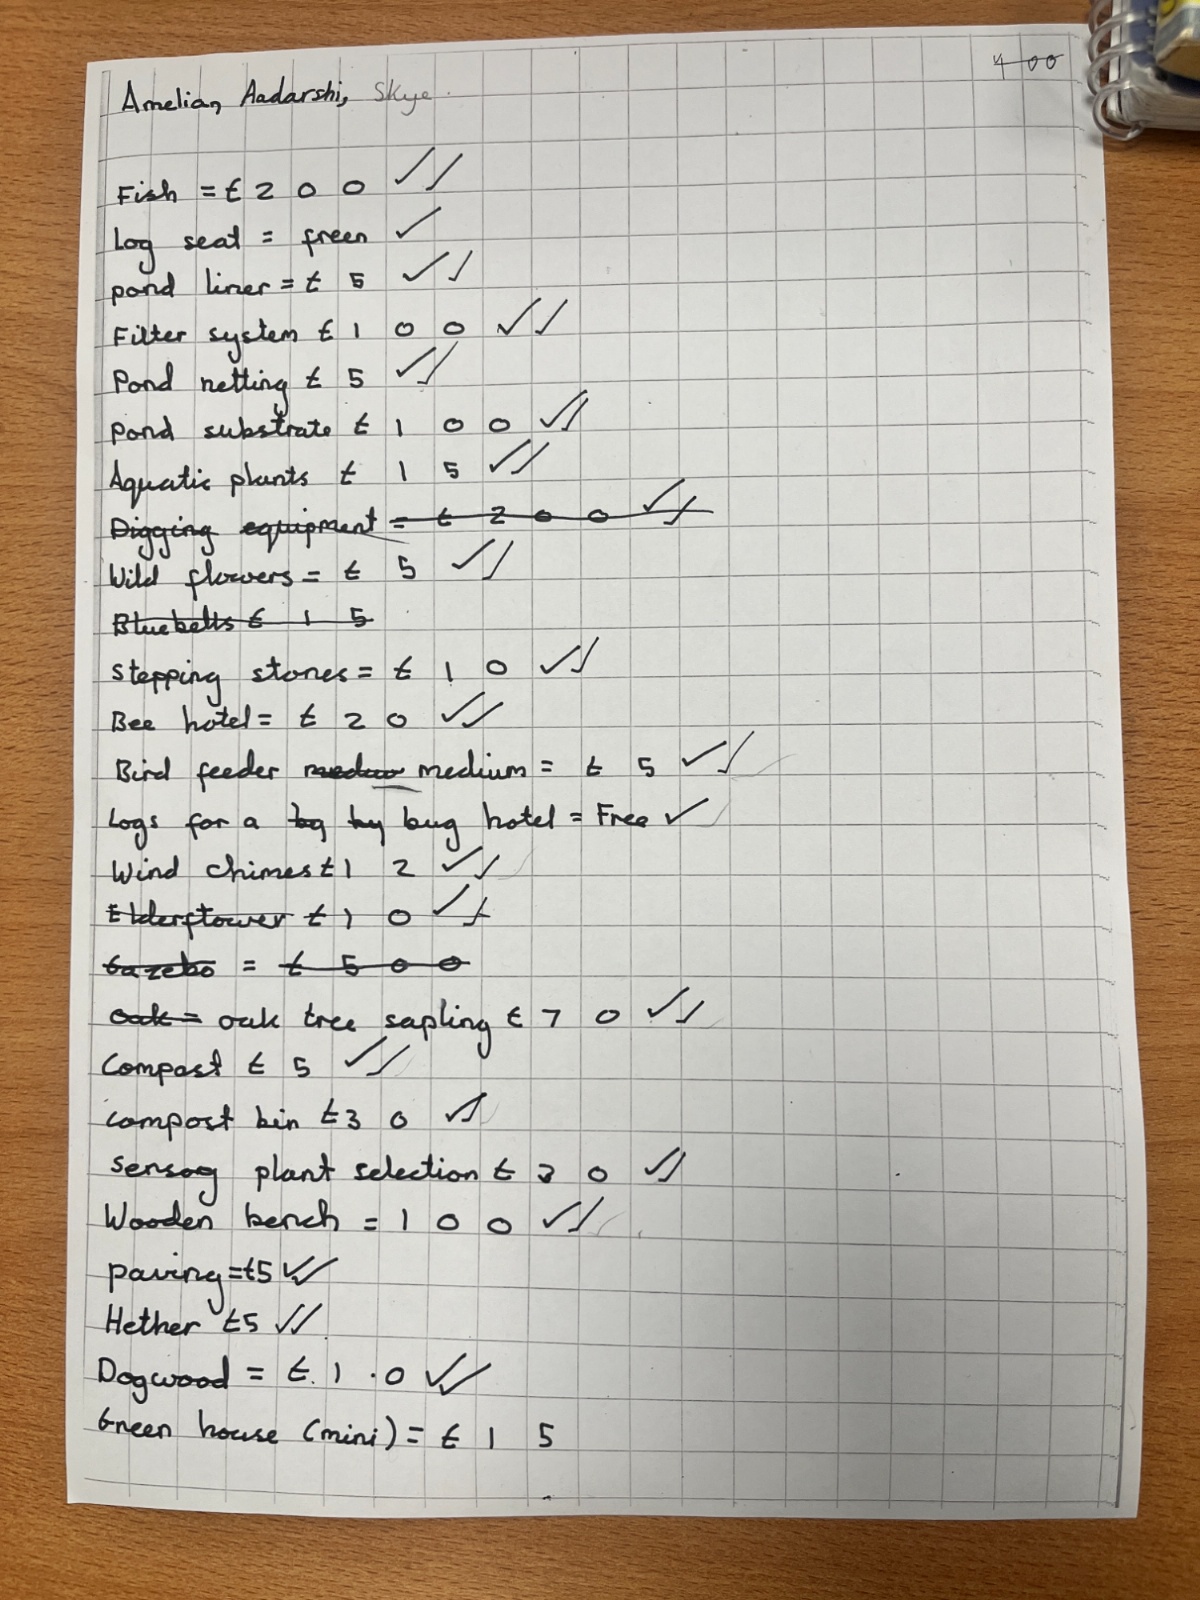 400
Amelia, Aadarshi, Skye
Fish = £200
Log seat = freen
pond liner = £5
Filter system £100
Pond netting £5
pond substrate £100
Aquatic plants £15
Digging equipment = £200
Wild flowers = £5
Bluebells £15
Stepping stones = £10
Bee hotel = £20
Bird feeder medium = £5
Logs for a bug hotel = Free
Wind chimes £12
Elderflower £10
Gazebo = £500
oak = oak tree sapling £70
Compost £5
compost bin £30
sensory plant selection £30
Wooden bench = 100
paving = £5
Hether £5
Dogwood = £10
Green house (mini) = £15